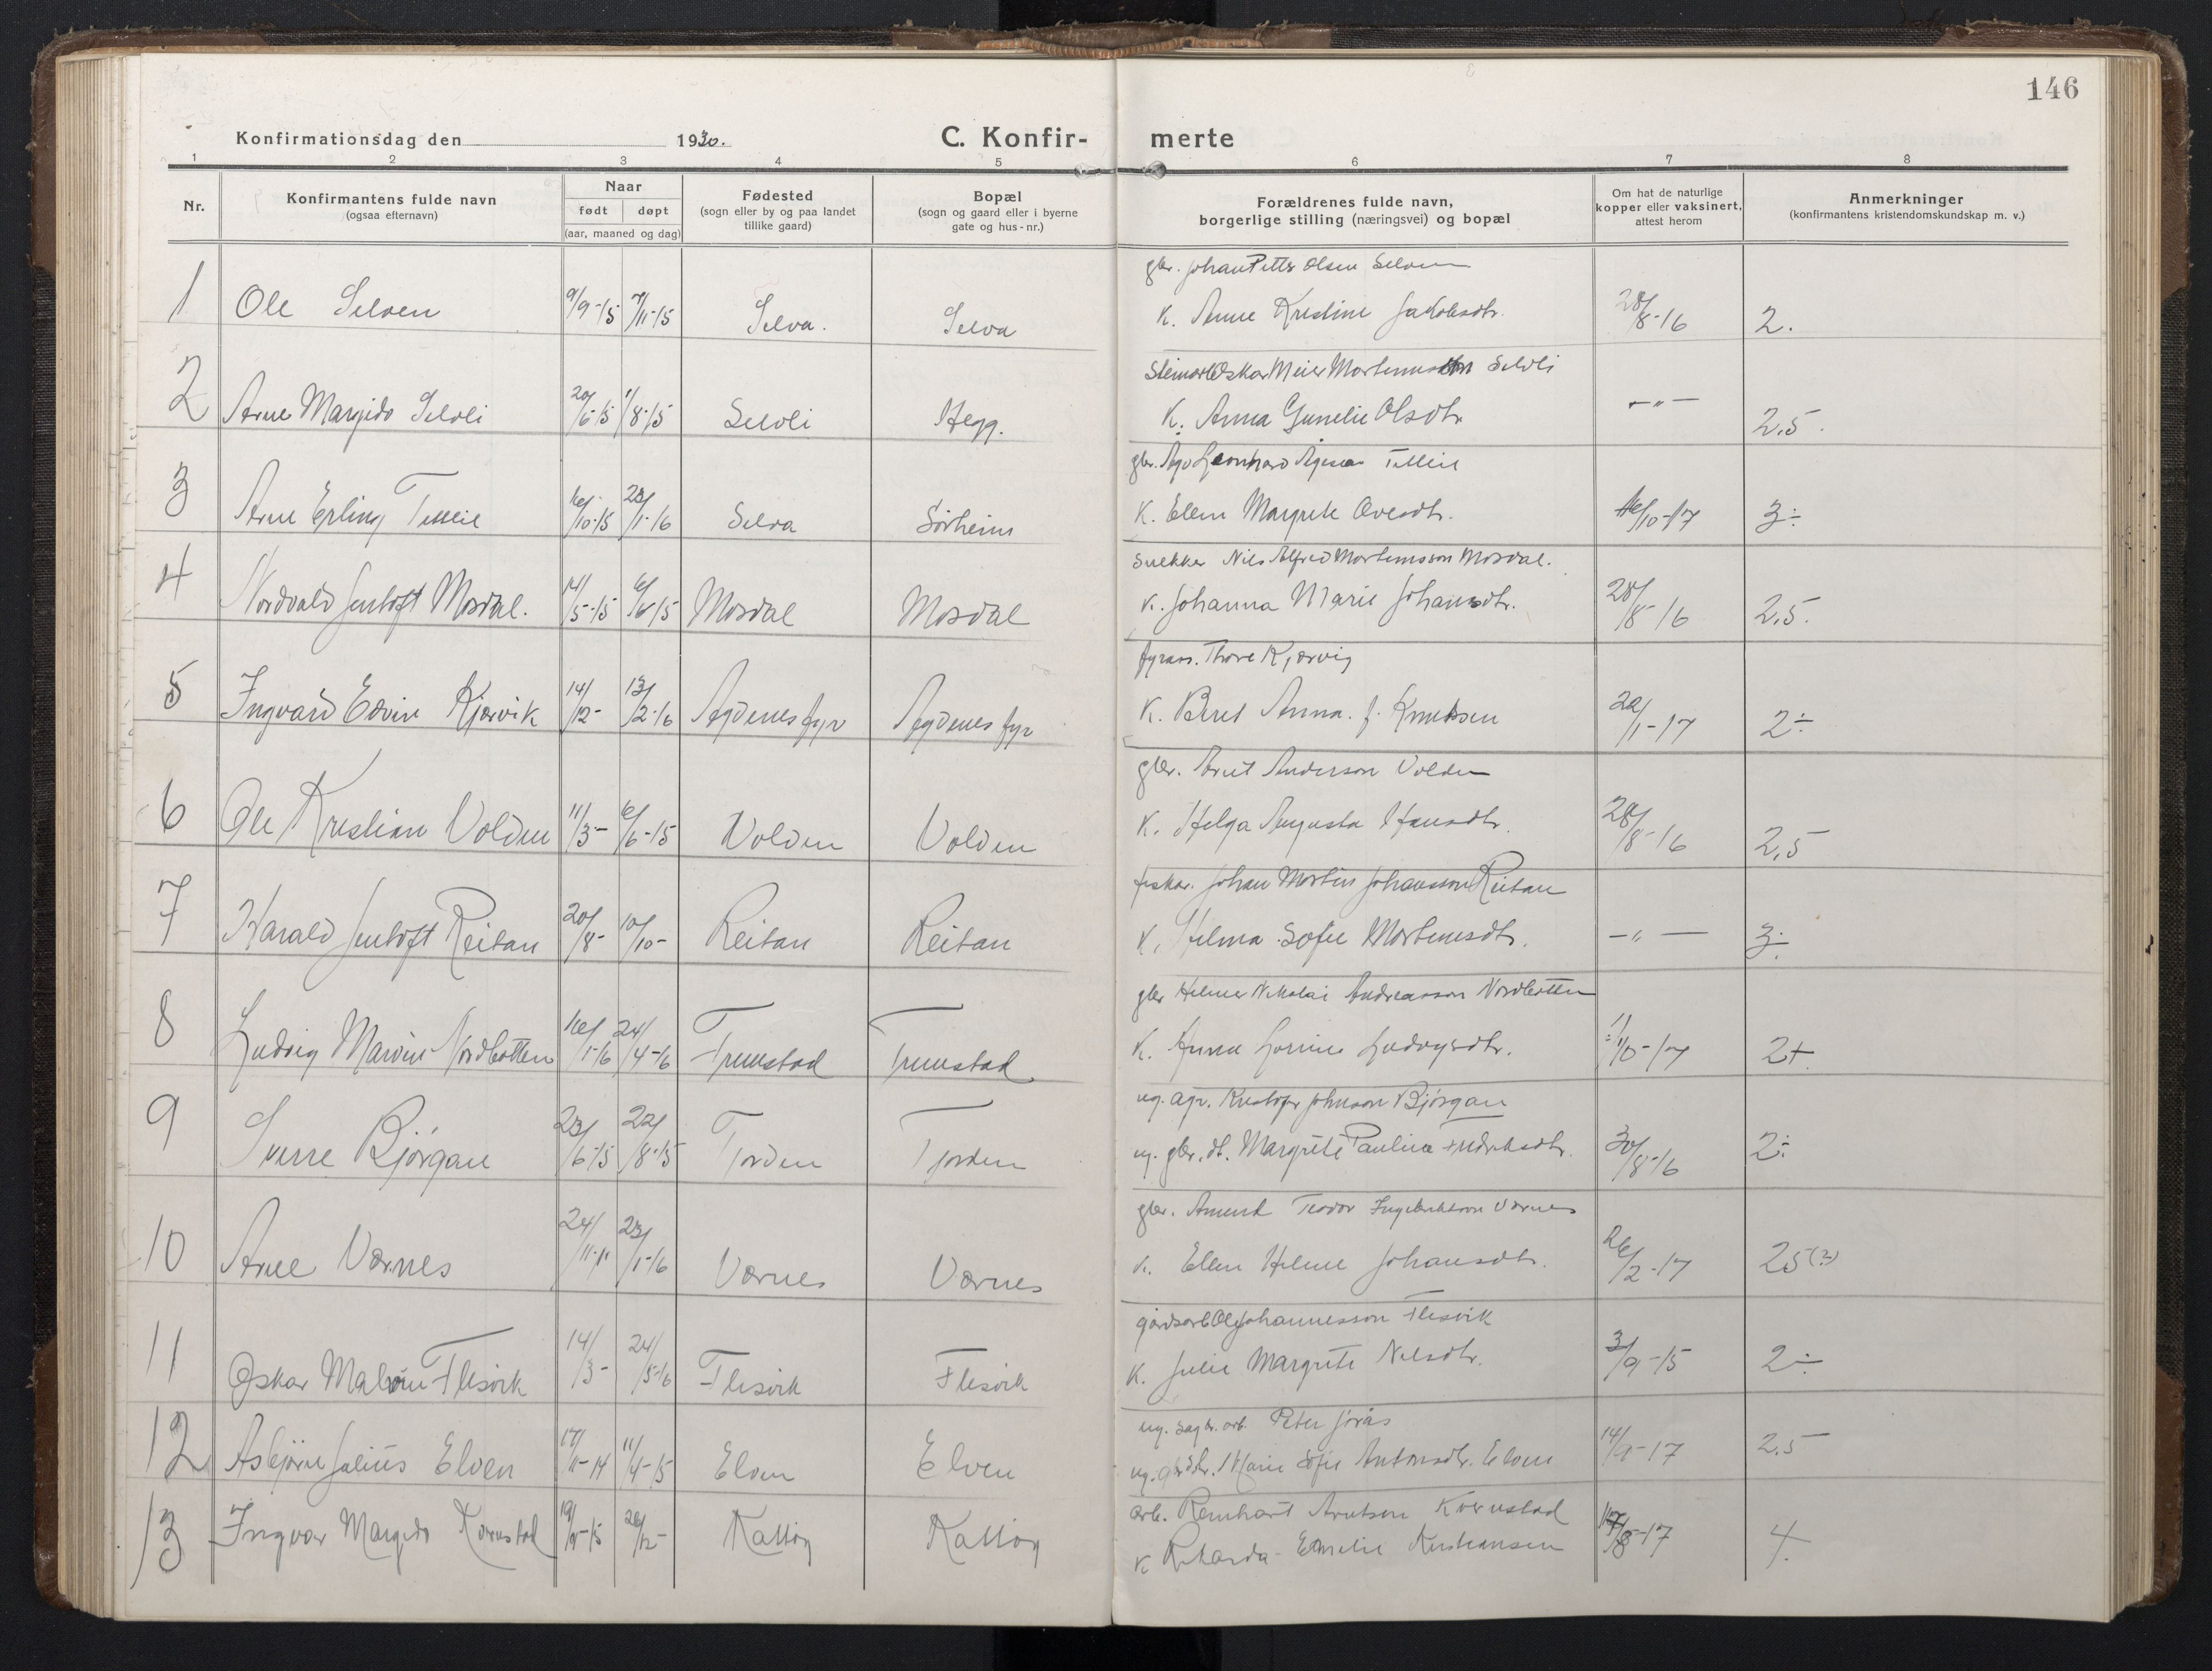 146
Konfirmationsdag den 1930. C. Konfir- merte
1 2 3 4 5 6 7 8
Nr. Konfirmantens fulde navn (ogsaa efternavn) Naar født døpt (aar, maaned og dag) Fødested (sogn eller by og paa landet tillike gaard) Bopæl (sogn og gaard eller i byerne gate og hus-nr.) Forældrenes fulde navn, borgerlige stilling (næringsvei) og bopæl Om hat de naturlige kopper eller vaksinert, attest herom Anmerkninger (konfirmantens kristendomskundskap m. v.)
gbr. Johan Petter Olsen Selven
1 Ole Selven 9/9-15 7/11-15 Selva. Selva K. Anne Kristine Jakobsdtr. 28/8-16 2.
Steinarb Oskar Meier Mortensson Selvli
2 Arne Margido Selvli 20/6-15 1/8-15 Selvli Hegg. K. Anna Gunelie Olsdtr -"- 2,5.
gbr. Ågo Leonhard Ågesen Tellei
3 Arne Erling 16/10-15 23/1-16 Selva Sørheim K. Elen Margrete Ovesdtr. 16/10-17 3÷
Snekker Nils Alfred Mortensson Mosdal.
4 Nordvald Jentoft Mosdal. 14/5-15 6/6-15 Mosdal Mosdal K. Johanna Marie Johansdtr. 28/8-16 2,5.
fyrass. Thore Kjørvig
5 Ingvard Edvin Kjørvik 14/12- 13/2-16 Agdenes fyr Agdenes fyr K. Beret Anna. f. Knudsen 22/1-17 2÷
gbr. Arnt Anderson Volden
6 Ole Kristian Volden 11/3- 6/6-15 Volden Volden K. Helga Augusta Hansdtr. 28/8-16 2,5
fiskar. Johan Morten Johansson Reitan
7 Harald Jentoft Reitan 20/8- 10/10- Reitan Reitan K. Hilma Sofie Mortensdtr. -"- 3÷
gbr Helmer Nikolai Andreasson Nordbotten
8 Ludvig Marvin Nordbotten 16/1-16 24/4-16 K. Anna Lorine Ludvigsdtr. 1/10-17 2+
ug. agr. Kristofer Johnson Bjørgan
9 Sverre Bjørgan 23/6-15 22/8-15 Tjorden Tjorden ug. gbr. dt. Margrete Pauline Fredriksdtr. 30/8-16 2÷
gbr. Amund Teodor Ingebriktson Værnes
10 Arne Værnes 24/11-11 23/1-16 Værnes Værnes K. Elen Helene Johansdtr. 26/2-17 25(?)
gårdsarb Ole Johannesson Flesvik
11 Oskar Malvin Flesvik 14/3- 24/5-16 Flesvik Flesvik K. Julie Margrete Nilsdtr. 3/9-15 2÷
ug. sagbr. arb. Peter Jørås
12 Asbjørn Julius Elven 17/11-14 11/4-15 Elven Elven ug. gbrdtr. Marie Sofie Antonsdtr. Elven 14/9-17 2.5
arb. Reinhart Arntsen Kvernstad
13 Ingvar Margido 19/9-15 26/12- K Rikarda Emelie Kristiansen 17/8-17 4.